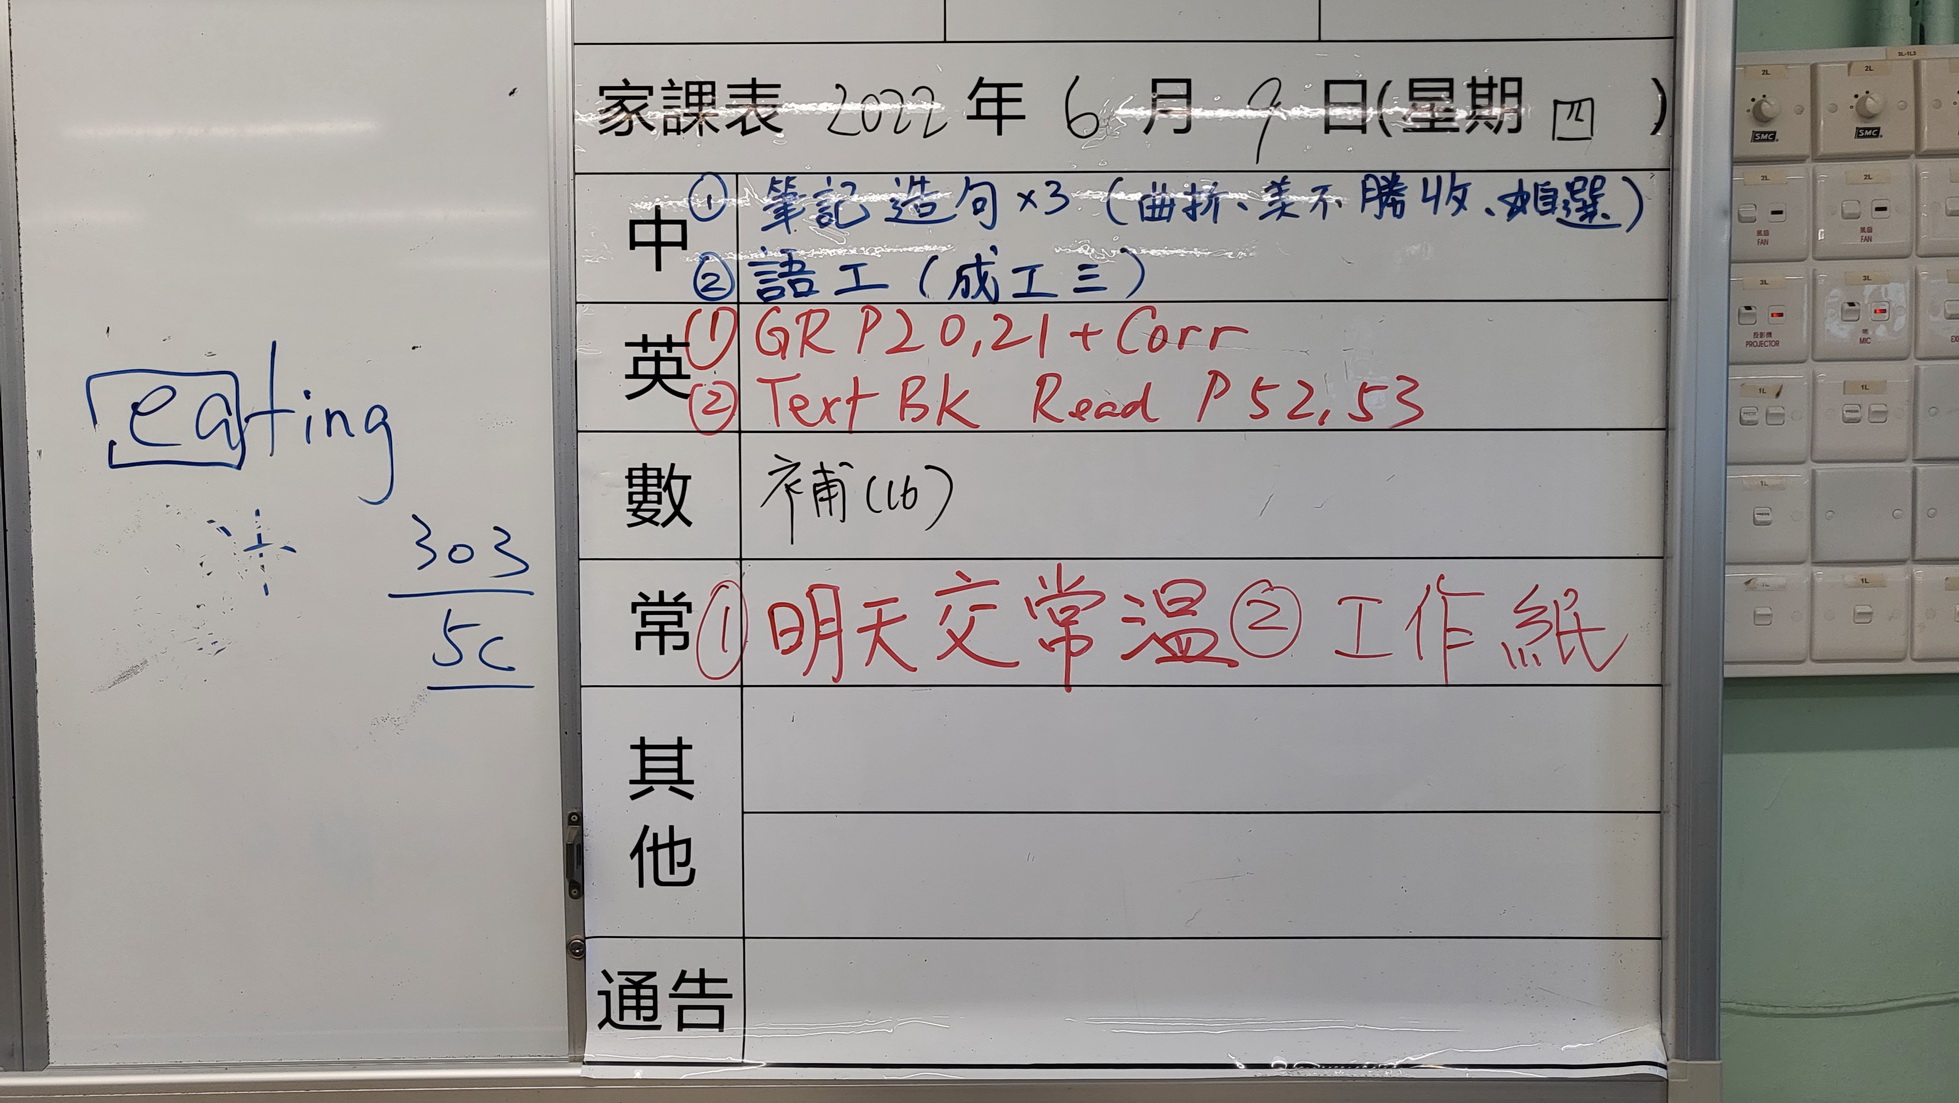 家課表 2022 年 6 月 9 日(星期 四 )
中 ① 筆記造句×3 (曲折、美不勝收、自選)
② 語工(成工三)
英 (1) GR P20,21 + Corr
(2) Text BK Read P52,53
數 補(16)
常 ① 明天交常温 ② 工作紙
其他
通告
eating
303
5C
2L
2L
SMC
SMC
2L
2L
風扇
FAN
風扇
FAN
3L
3L
投影機
PROJECTOR
咪
MIC
1L
1L
1L
1L